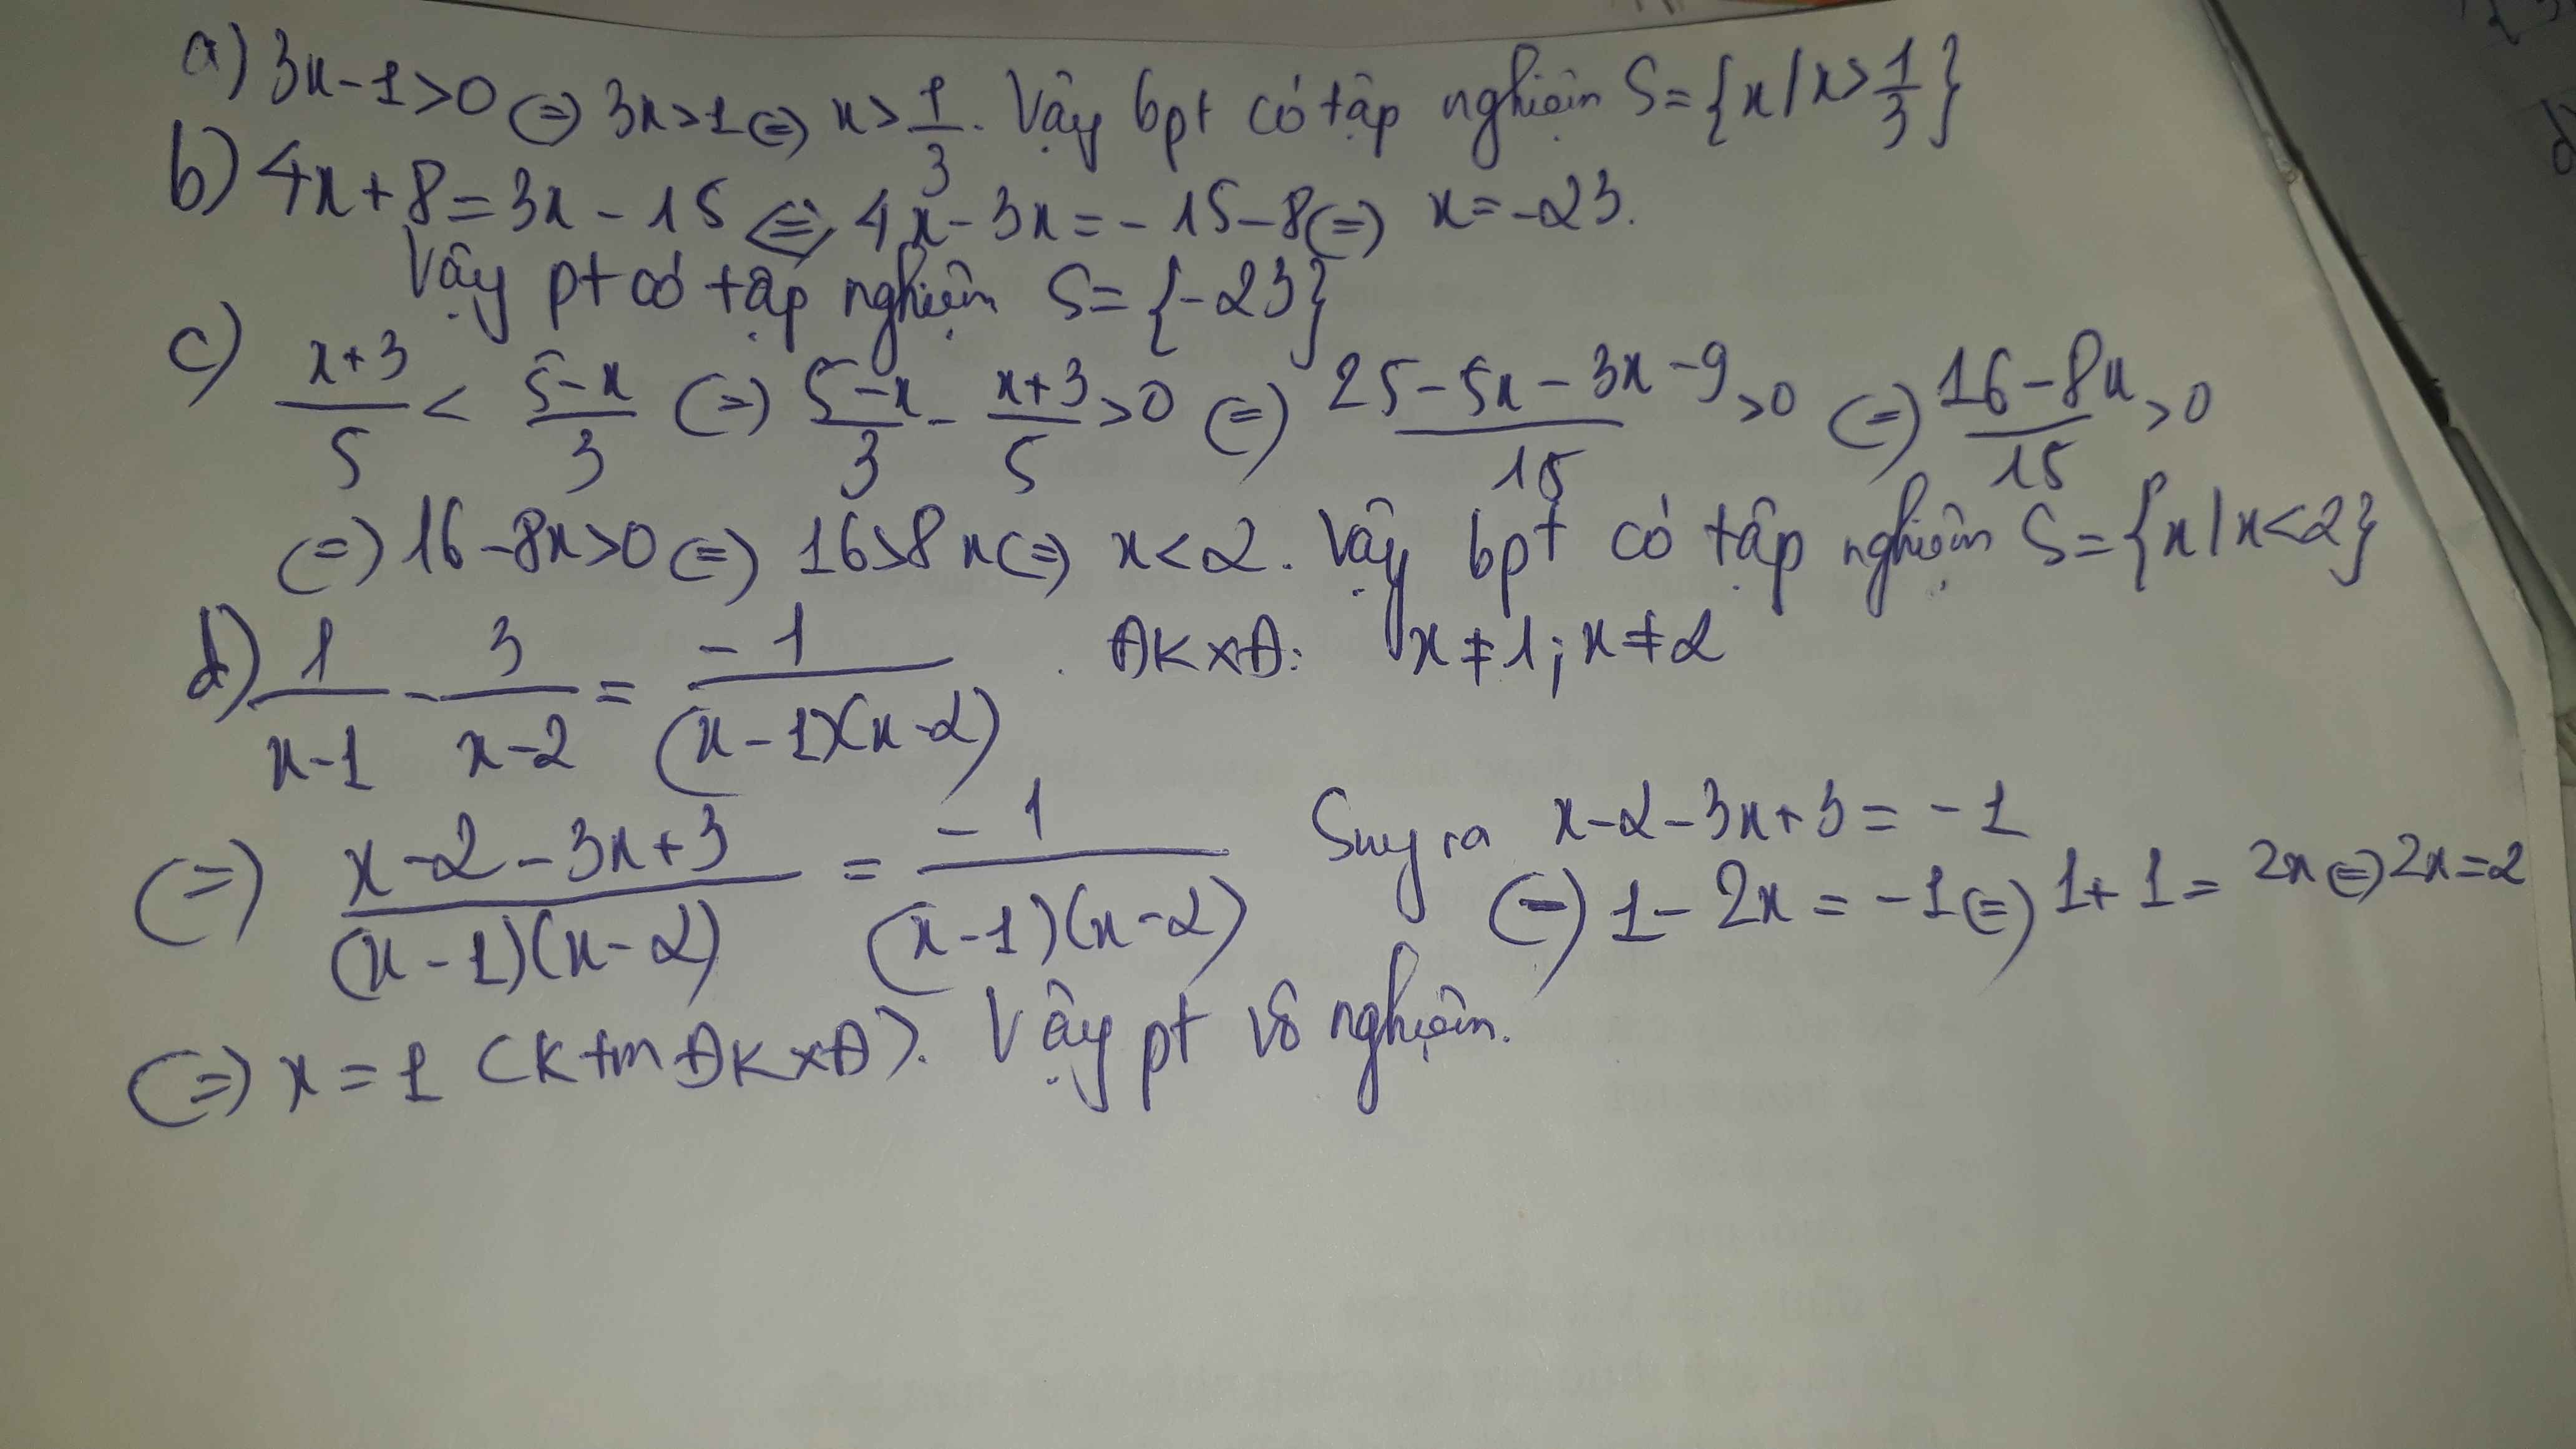 a) 3x-1>0 (=) 3x>1 (=) x > 1/3. Vậy bpt có tập nghiệm S={x/x>1/3}
b) 4x+8=3x-15 <=> 4x-3x=-15-8 (=) x=-23.
Vậy pt có tập nghiệm S={-23}
c) (x+3)/5 < (5-x)/3 (=) (5-x)/3 - (x+3)/5 >0 (=) (25-5x-3x-9)/15 >0 (=) (16-8x)/15 >0
(=) 16-8x>0 (=) 16>8x (=) x<2. Vậy bpt có tập nghiệm S={x/x<2}
d) 1/(x-1) - 3/(x-2) = -1/((x-1)(x-2)). ĐKXĐ: x≠1; x≠2
(=) (x-2-3x+3)/((x-1)(x-2)) = -1/((x-1)(x-2)) Suy ra x-2-3x+3=-1
(=) 1-2x=-1 (=) 1+1=2x (=) 2x=2
(=) x=1 (K tm ĐKXĐ). Vậy pt vô nghiệm.